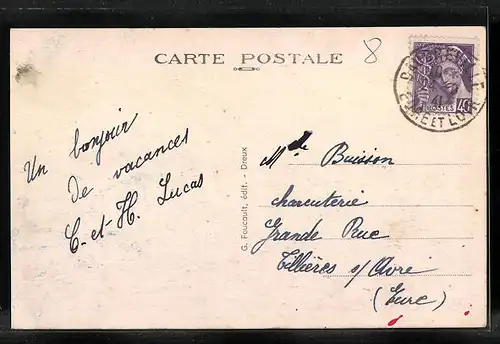 CARTE POSTALE
8
Un bonjour
de vacances
C. et H. Lucas
G. Foucault, édit. - Dreux
Buisson
charcuterie
Grande Rue
Tillières s/ Avre
(Eure)
POSTES
EURE ET LOIR